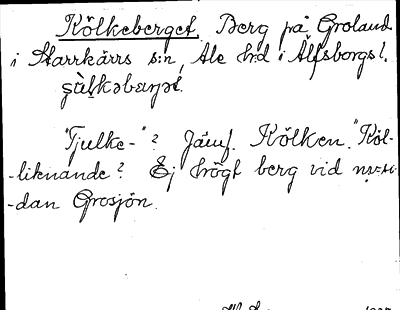 Kölkeberget. Berg på Groland
i Starrkärrs s:n, Ale h:d i Älfsborgs l.
"Tjulke-"? Jämf. Kölken. "Köl-
-liknande"? Ej högt berg vid
-dan Grosjön.